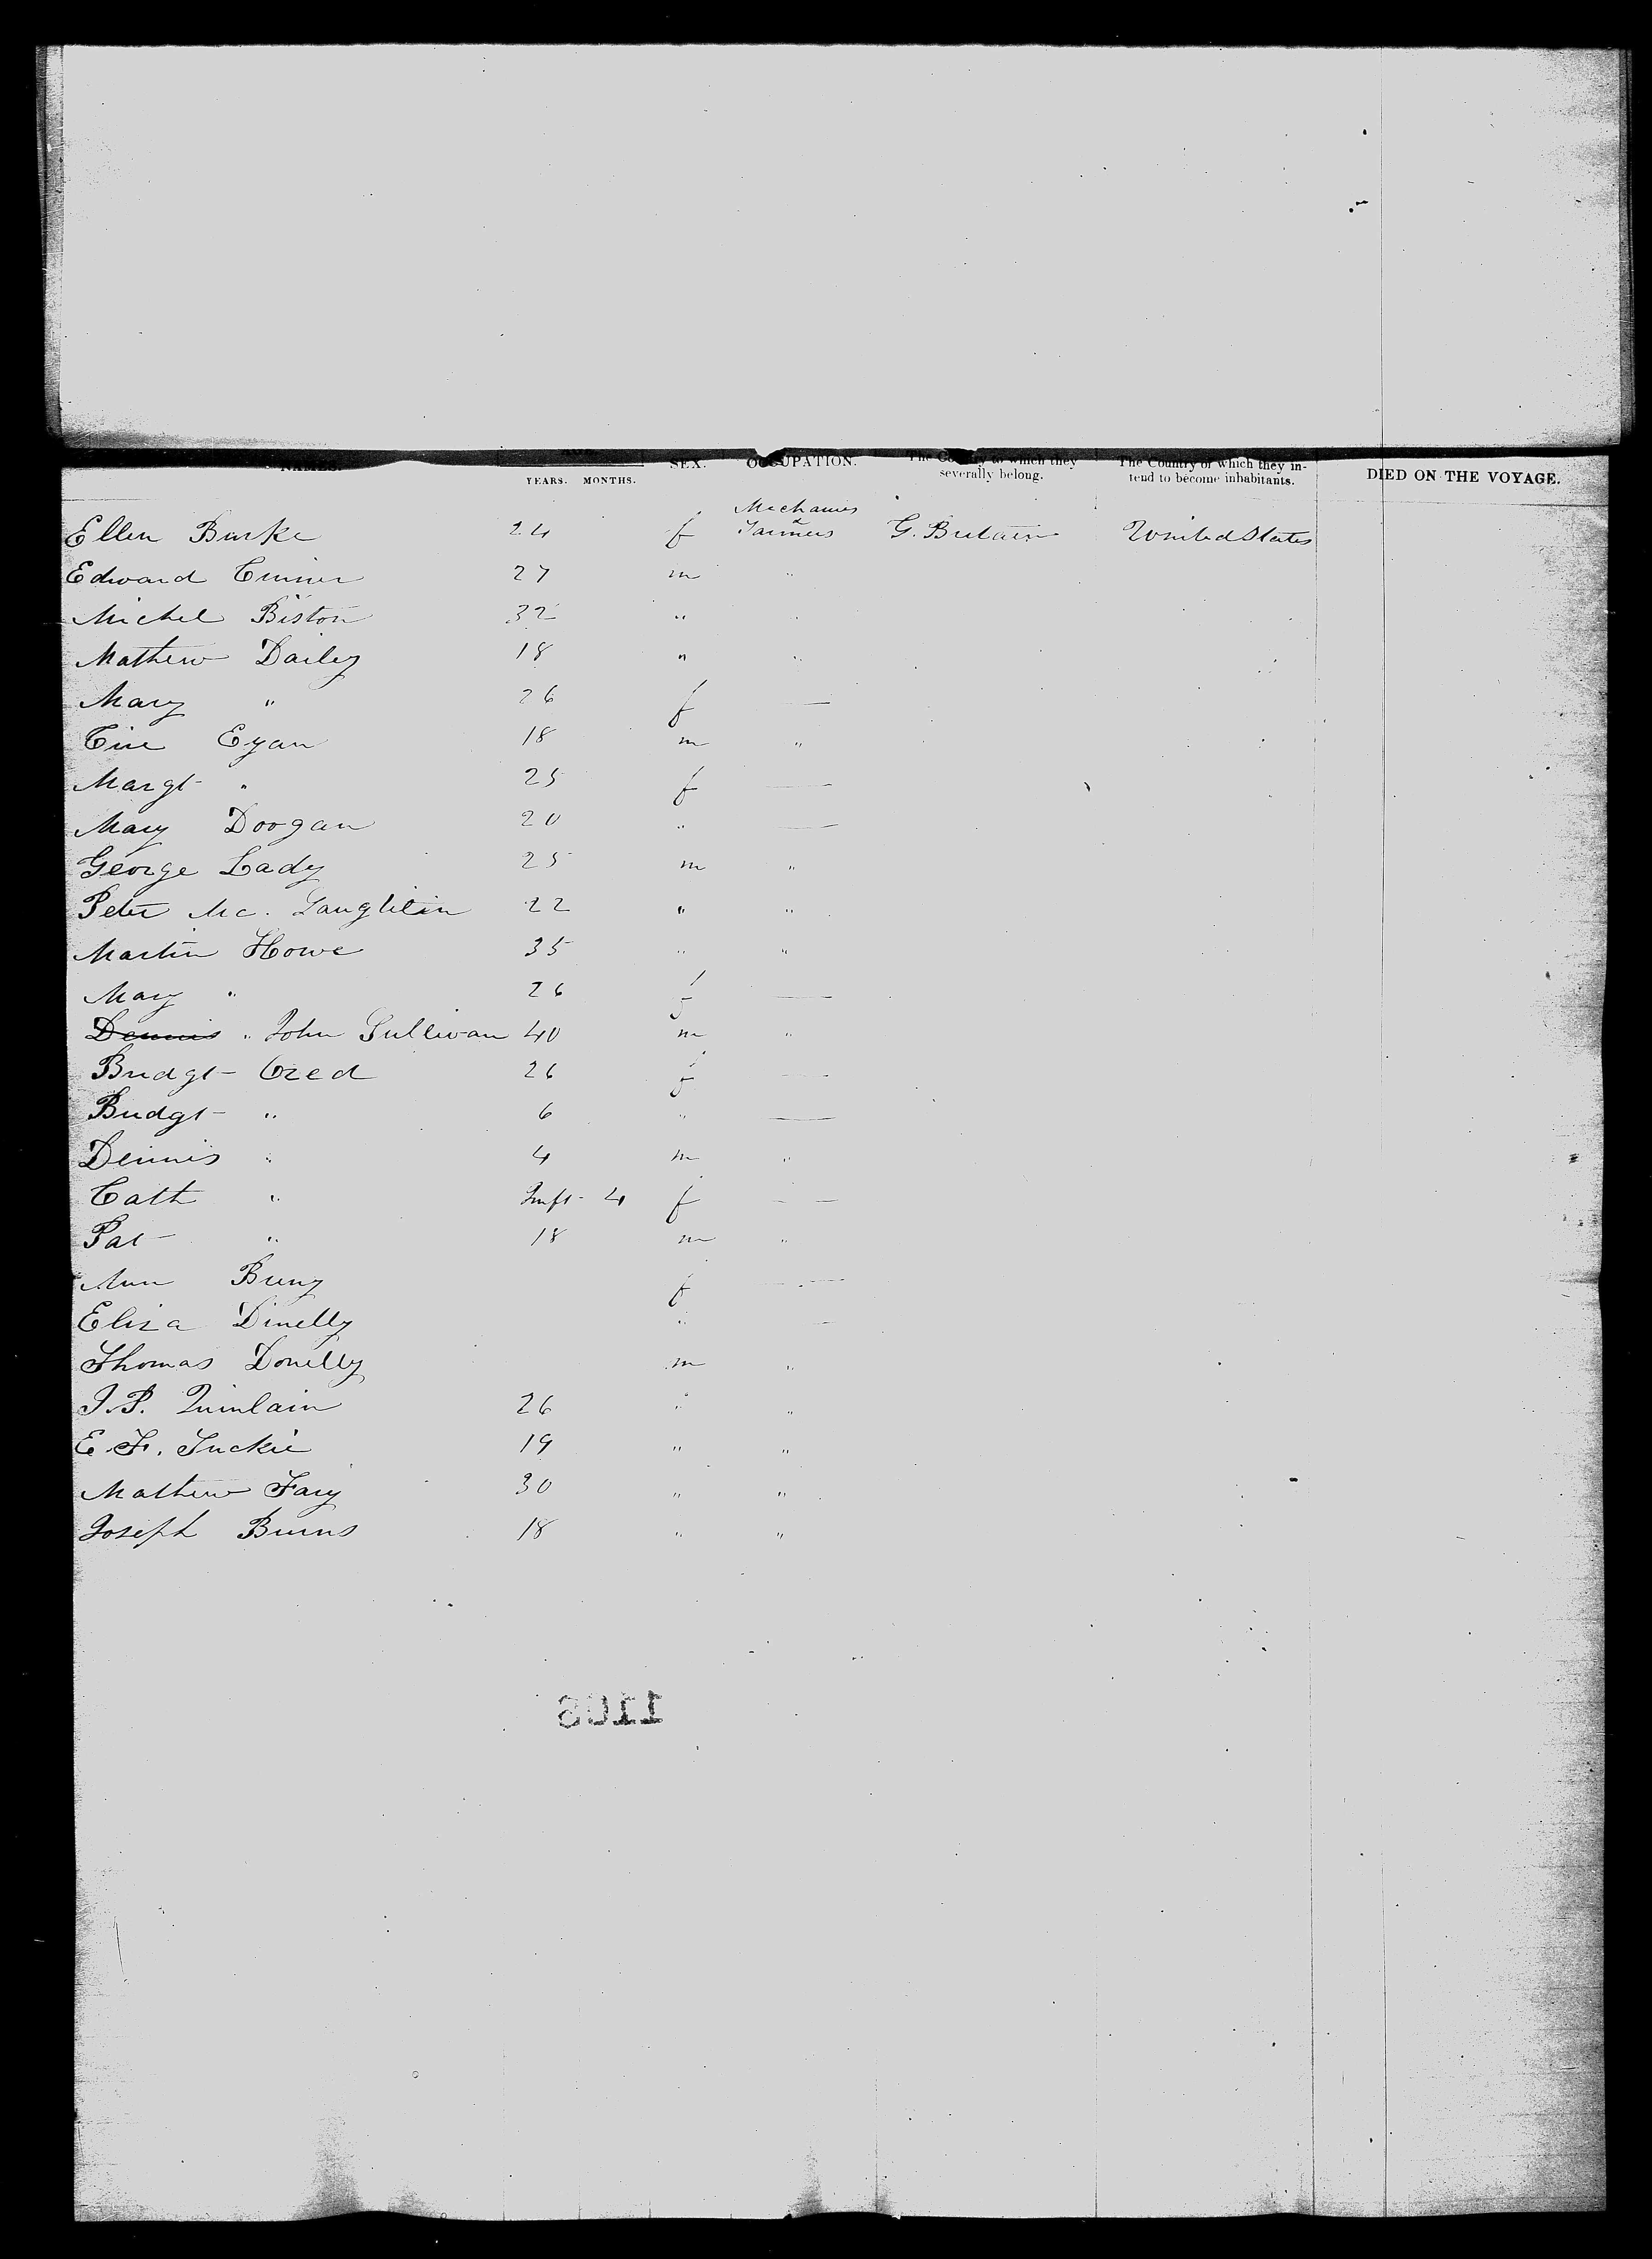 NAMES. YEARS. MONTHS. SEX. OCCUPATION. The Country to which they severally belong. The Country of which they intend to become inhabitants. DIED ON THE VOYAGE.
Mechanics
Ellen Burke 24 f Farmers G. Britain United States
Edward 27 m "
Michel Biston 32 " "
Mathew Dailey 18 " "
Mary " 26 f —
Eyan 18 m "
Margt " 25 f —
Mary Doogan 20 " —
George Lady 25 m "
Peter Mc. Laughlin 22 " "
Martin Howe 35 " "
Mary " 26 f —
Dennis " John Sullivan 40 m "
Bridgt 26 f —
Bridgt " 6 " —
Dennis " 4 m "
Cath " Inft - 4 f —
Pat " 18 m "
Ann f —
Eliza Dinelly " —
Thomas Donelly m "
J. P. Quinlain 26 " "
E. F. Tuckie 19 " "
Mathew 30 " "
Joseph Burns 18 " "